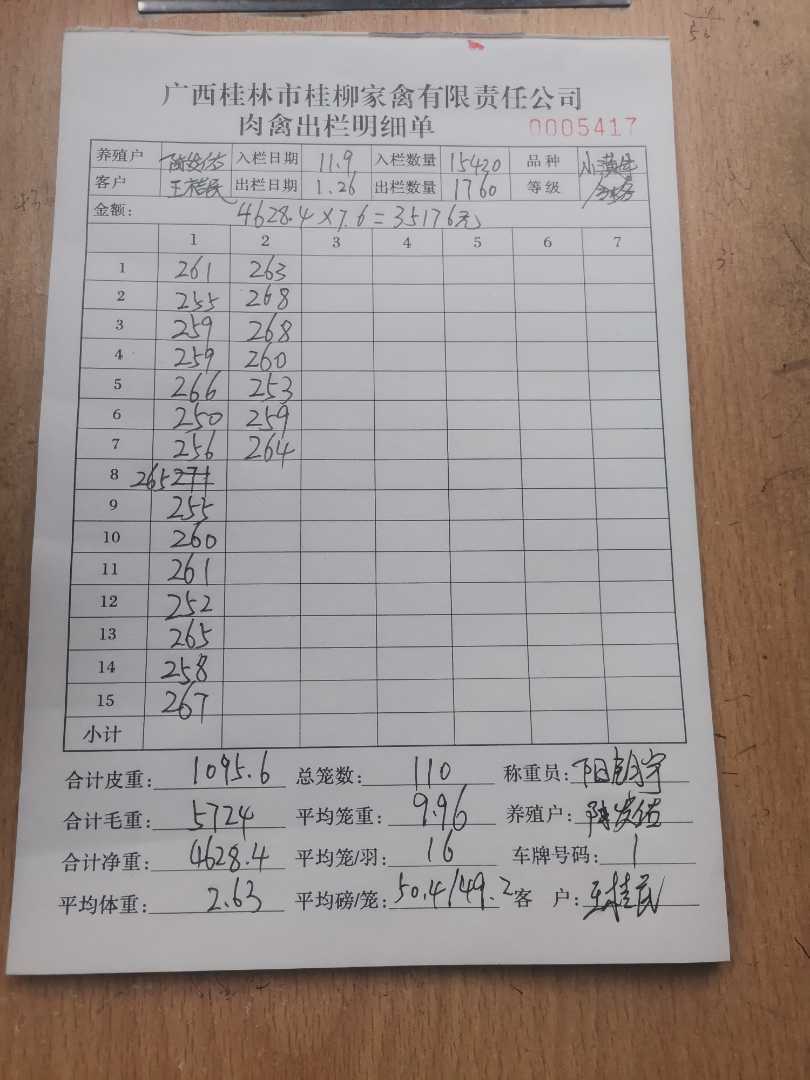 广西桂林市桂柳家禽有限责任公司
肉禽出栏明细单 0005417
养殖户 入栏日期 11.9 入栏数量 15420 品种 小黄
客户 王桂民 出栏日期 1.26 出栏数量 1760 等级
金额: 4628.4×7.6=35176元
1 2 3 4 5 6 7
1 261 263
2 255 268
3 259 268
4 259 260
5 266 253
6 250 259
7 256 264
8 265 271
9 255
10 260
11 261
12 252
13 265
14 258
15 267
小计
合计皮重: 1095.6 总笼数: 110 称重员:
合计毛重: 5724 平均笼重: 9.96 养殖户:
合计净重: 4628.4 平均笼/羽: 16 车牌号码: 1
平均体重: 2.63 平均磅/笼: 50.4/49.2 客 户: 王桂民